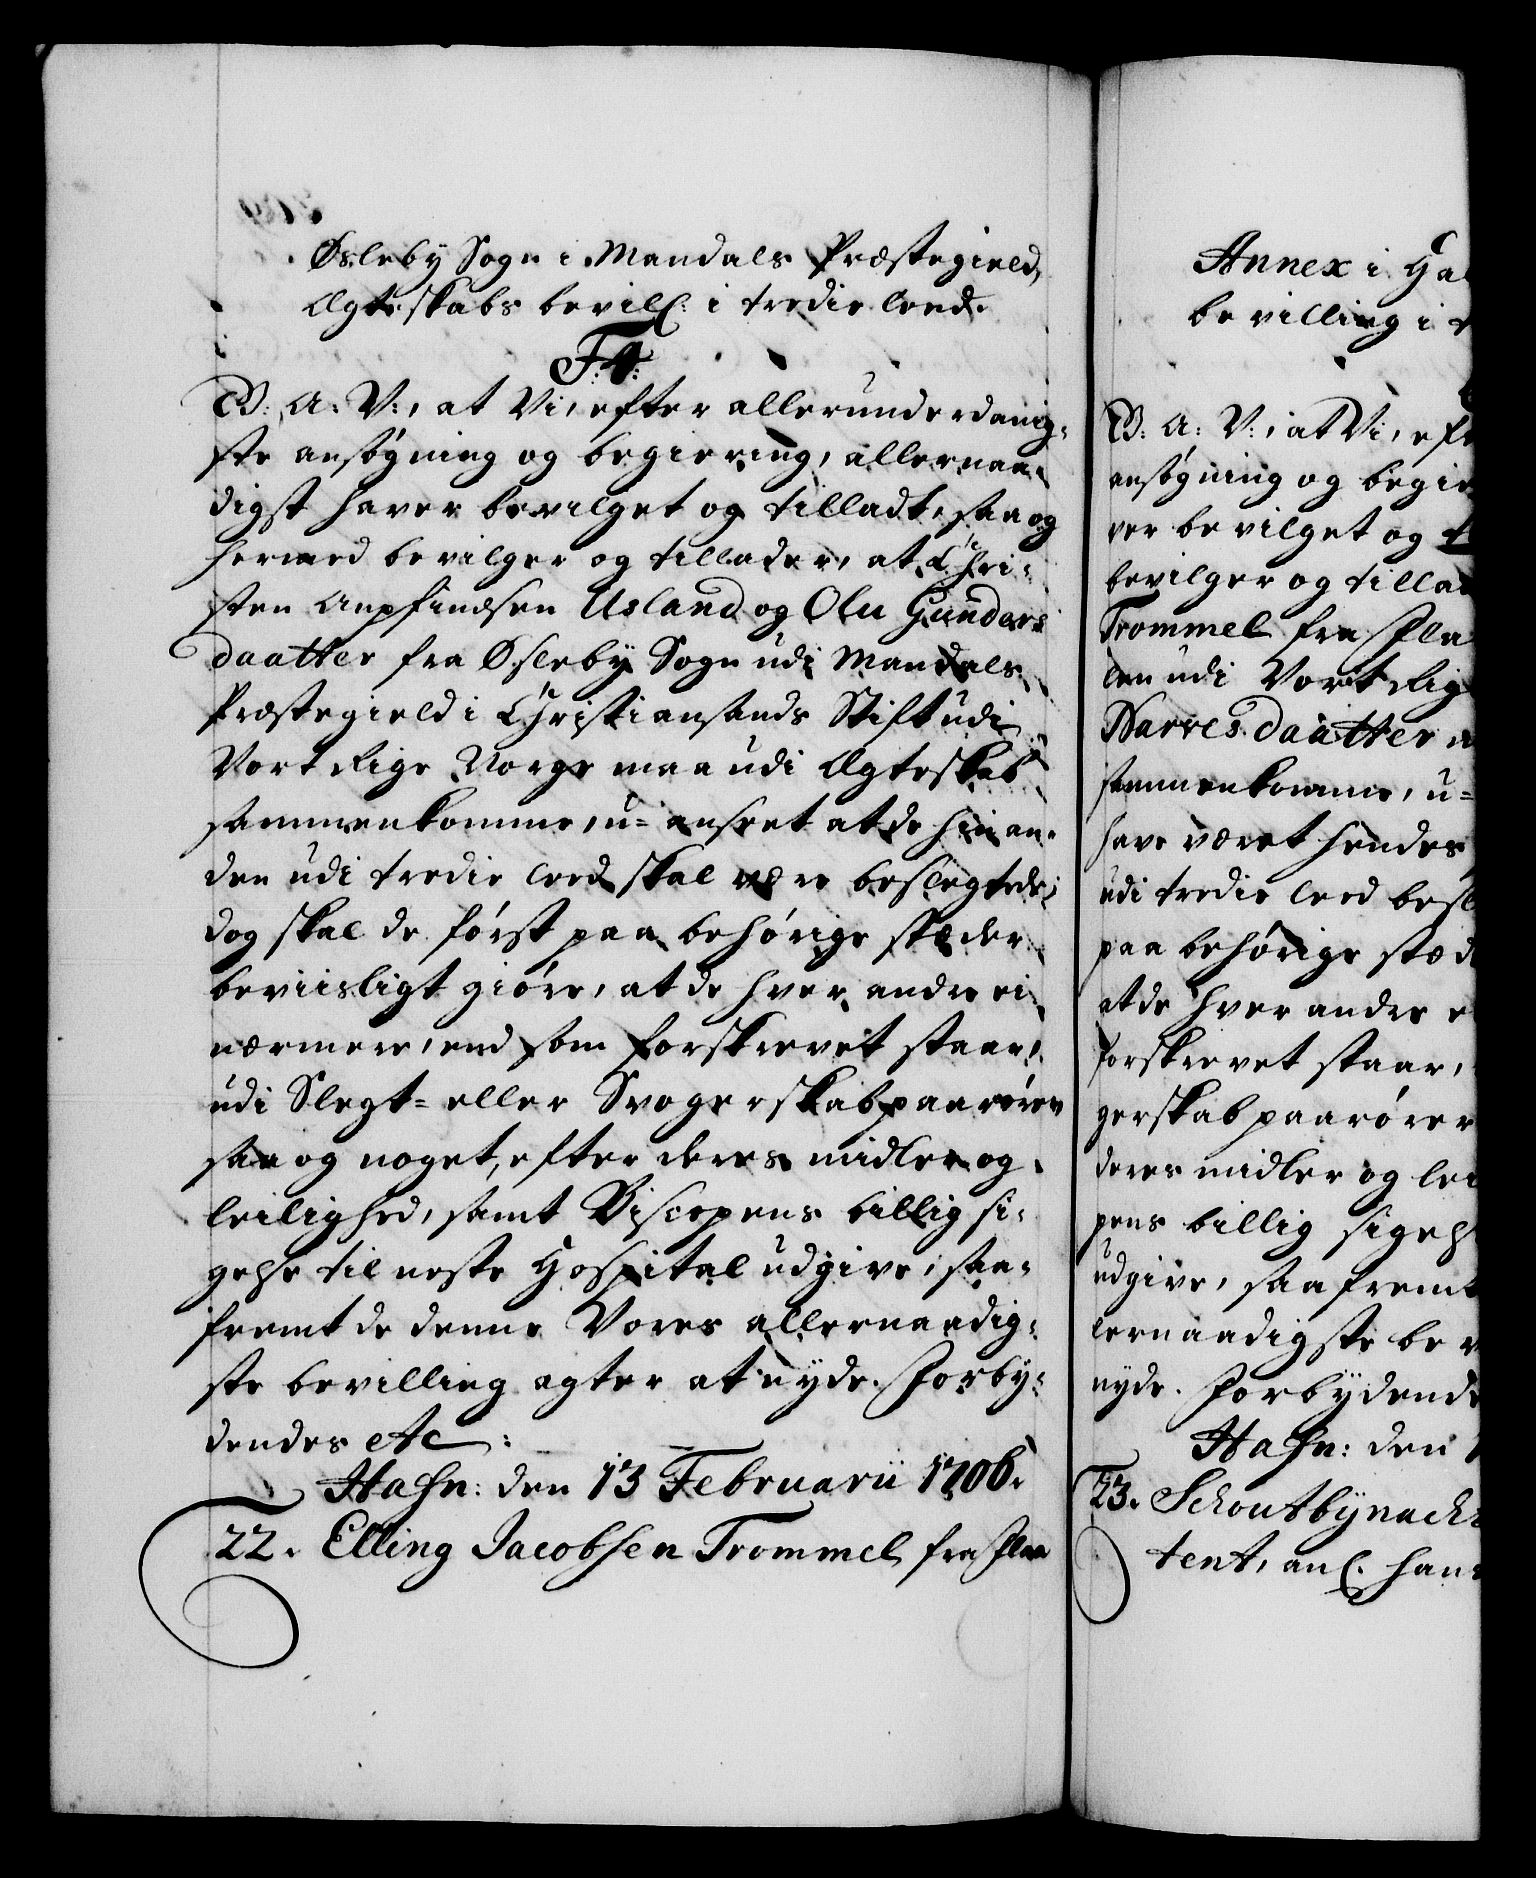 Øsleby Sogn i Mandals Præstegield,
Ægteskabs bevil: i tredie leed.
F: 4:
G: A: V:, at Vi, efter allerunderdanig-
ste ansøgning og begiering, allernaa-
digst haver bevilget og tilladt, saa og
hermed bevilger og tillader, at Chri-
sten Anfindsen Usland og Olu Gunders
daatter fra Øsleby Sogn udi Mandals
Præstegield i Christiansands Stift udi
Vort Rige Norge maa udi Ægteskab
sammenkomme, u-anseet at de hinan-
den udi tredie leed skal være beslegtede;
dog skal de først paa behørige stæder
beviisligt giøre, at de hver andre ei
nærmere, end som forskrevet staar,
udi Slegt- eller Svogerskab paarører
saa og noget, efter deres midler og
leilighed, samt Biscopens billig si-
gelse til neste Hospital udgive, saa-
fremt de denne Vores allernaadig-
ste bevilling agter at nyde. Forby-
dendes etc:
Hafn: den 13 Februarii 1706.
22. Elling Jacobsen Trommel fra Flaa
Annex i Hal
bevilling i t
G: A: V:, at Vi, eft
ansøgning og begie
ver bevilget og t
bevilger og tillad
Trommel fra Flaa
len udi Vort Rig
Narvesdaatter m
sammenkomme, u-
have været hendes
udi tredie leed besl
paa behørige stæd
at de hver andre e
forskrevet staar,
gerskab paarører
deres midler og lei
pens billig sigels
udgive, saafremt
lernaadigste bev
nyde. Forbydende
Hafn: den 1
23. Schoutbynacht
tent, anl. hans